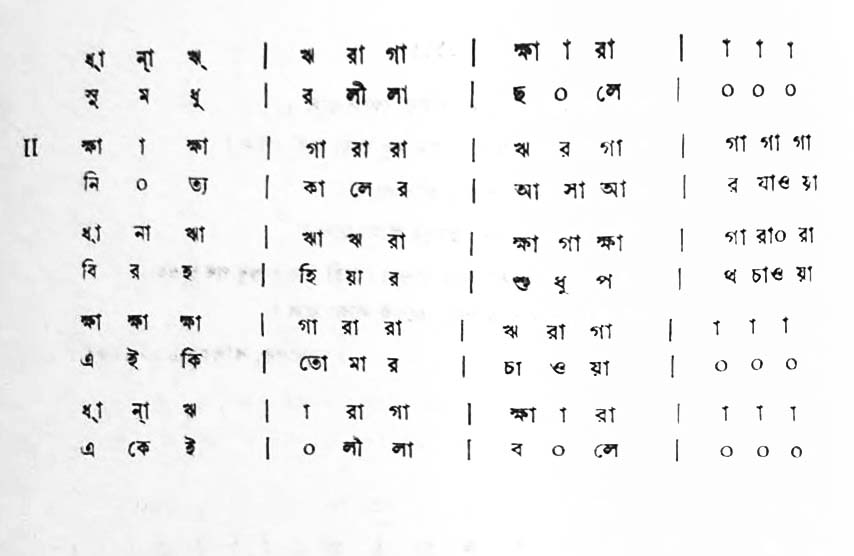 ধ্া ন্া ঋ্ | ঋ রা গা | ক্ষা া রা | া া া
সু ম ধু | র লী লা | ছ ০ লে | ০ ০ ০
II ক্ষা া ক্ষা | গা রা রা | ঋ র গা | গা গা গা
নি ০ ত্য | কা লে র | আ সা আ | র যাও য়া
ধ্া না ঋা | ঋা ঋ রা | ক্ষা গা ক্ষা | গা রা০ রা
বি র হ | হি য়া র | শু ধু প | থ চাও য়া
ক্ষা ক্ষা ক্ষা | গা রা রা | ঋ রা গা | া া া
এ ই কি | তো মা র | চা ও য়া | ০ ০ ০
ধ্া ন্া ঋ | া রা গা | ক্ষা া রা | া া া
এ কে ই | ০ লী লা | ব ০ লে | ০ ০ ০